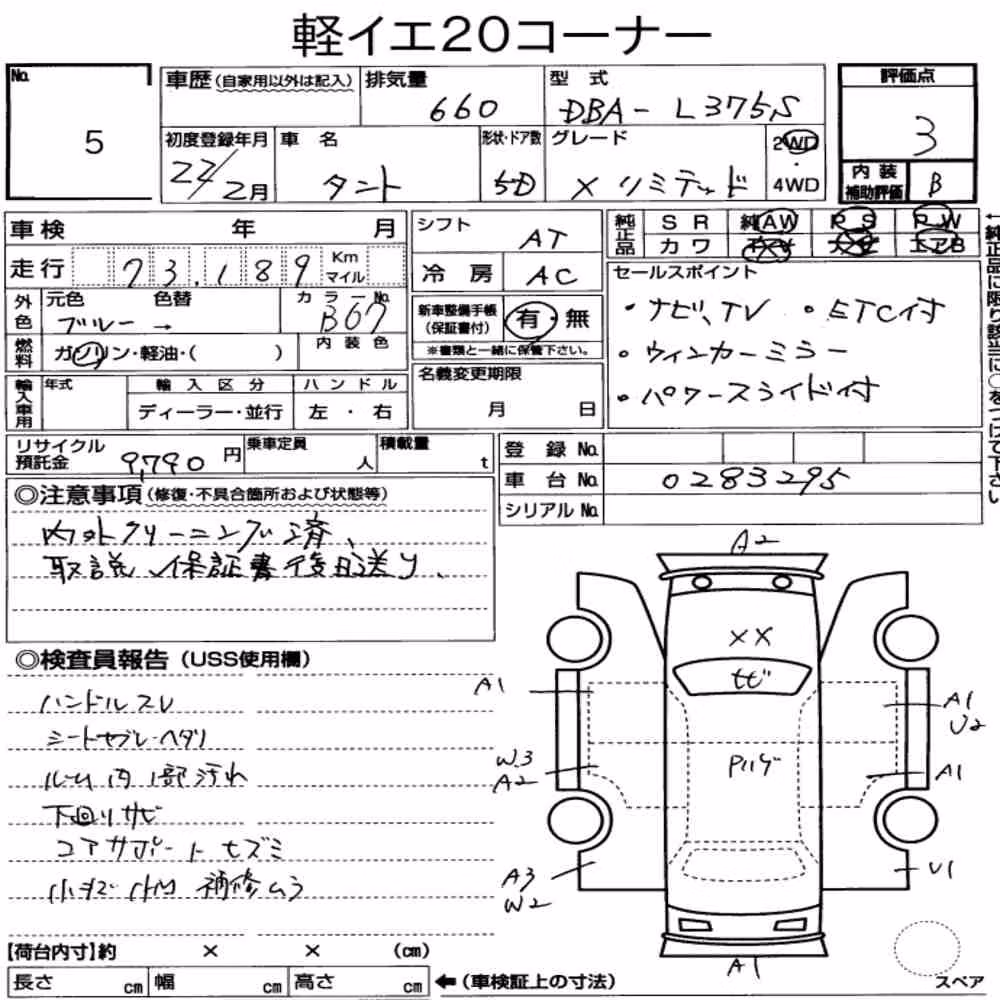 軽イエ20コーナー
No.
5
車歴(自家用以外は記入)
排気量
660
型 式
DBA-L375S
評価点
3
初度登録年月
22/2月
車 名
タント
形状・ドア数
5D
グレード
X リミテッド
2WD
・
4WD
内 装
補助評価
B
車検 年 月
走行 73,189 Km
マイル
外色
元色 色替
ブルー →
カラーNo.
B67
燃料
ガソリン・軽油・( )
内 装 色
輸入車用
年式
輸 入 区 分
ディーラー・並行
ハ ン ド ル
左 ・ 右
シフト
AT
冷 房
AC
新車整備手帳
(保証書付)
有・無
※書類と一緒に保管下さい。
名義変更期限
月 日
純正品
S R 純AW P S P W
カ ワ エアB
←純正品に限り該当に○をつけて下さい
セールスポイント
・ナビ、TV ・ETC付
・ウィンカーミラー
・パワースライド付
リサイクル
預託金
9,790 円
乗車定員
人
積載量
t
登 録 No.
車 台 No.
0283295
シリアルNo.
◎注意事項(修復・不具合箇所および状態等)
内外クリーニング済、
取説、保証書後日送り、
◎検査員報告(USS使用欄)
ハンドルスレ
シートヤブレ・ヘタリ
ルーム内1部汚れ
下回りサビ
コアサポートヒズミ
補修ムラ
A2
XX
A1
A1
U2
W3
A2
A1
A3
W2
U1
A1
スペア
【荷台内寸】約 × × (cm)
長さ cm 幅 cm 高さ cm ←(車検証上の寸法)